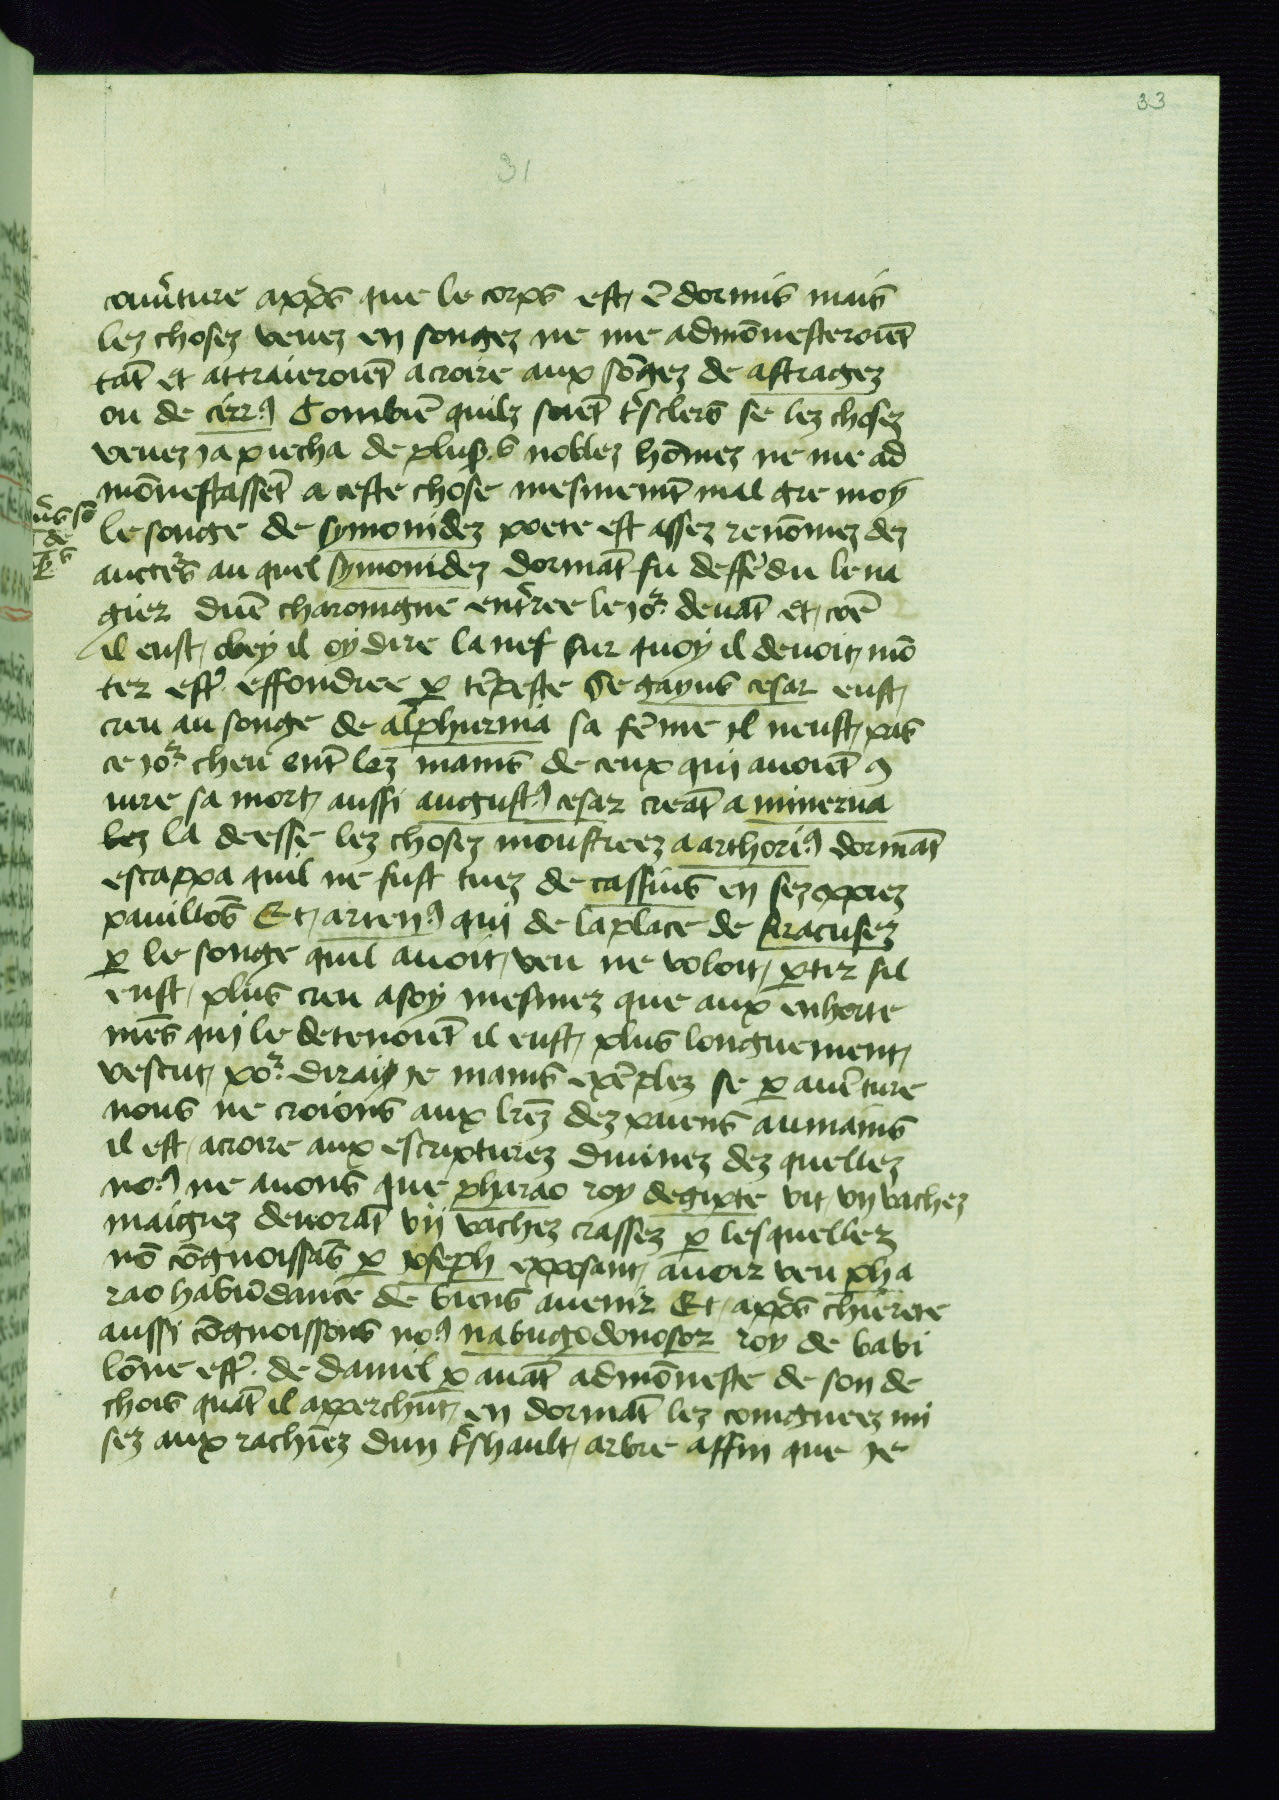 33
31
couu̾ture app̾s que le corps est ē dormis mais
lez chosez veuez en songez ne me admōnesteroiēt
tāt et attraieroiēt acroire aux sōgez de astragez
ou de cirrꝰ Combiē quilz soiēt t̾sclers se lez chosez
veuez ia piecha de plus.s noblez hōmez ne me ad
mōnestassēt a ceste chose mesmemt̄ mal gre moy
le songe de symonidez poete est assez renōmez dez
aucte̾s au quel symonidez dormāt fu deffēdu le na
gier dunē charoingne ent̾ree le ior̾ deuāt et coē
il eust obey il oy dire la nef sur quoy il deuoit mō
ter est̾ effondree ꝑ tēpeste Se gayus cesar eust
creu au songe de alphurnia sa fēme il neust pas
ce ior̾ cheu ent̄ lez mains de ceux qui auoiēt ꝯ
iure sa mort aussi augustꝰ cesar creāt a minerua
lez la deesse lez chosez moustreez a arthoriꝰ dormāt
escappa quil ne fust tuez de cassius en sez ꝓprez
pauillōs Et artenꝰ qui de la place de siracusez
ꝑ le songe quil auoit veu ne voloit ꝑtir sil
eust plus creu asoy mesmez que aux enhorte
mēs qui le detenoiēt il eust plus longuement
vescut por̾ diray ie mains exēplez se ꝑ auēture
nous ne croions aux lrēz dez paiens aumains
il est acroire aux escripturez diuinez dez quellez
noꝰ ne auons que pharao roy degipte vit vij vachez
maigrez deuorāt vij vachez crassez ꝑ lesquellez
nō cōgnoissās ꝑ ioseph exposant auoir veu pha
rao habūdance de biens auenir Et app̾s chierete
aussi cōgnoissons noꝰ nabugodonosor roy de babi
lōne est̾ de daniel ꝑ auāt admōneste de son de
chois quāt il apperchut en dormāt lez coingneez mi
sez aux rachinez dun t̾shault arbre affin que ie